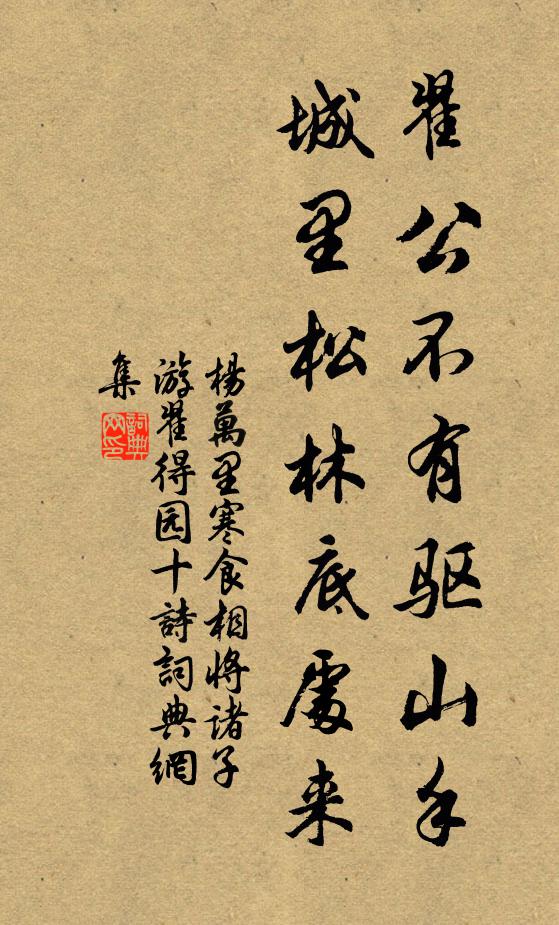 翟公不有驱山手
城里松林底處来
楊萬里寒食相將諸子
游翟得园十詩詞典網
集
詞典
网印